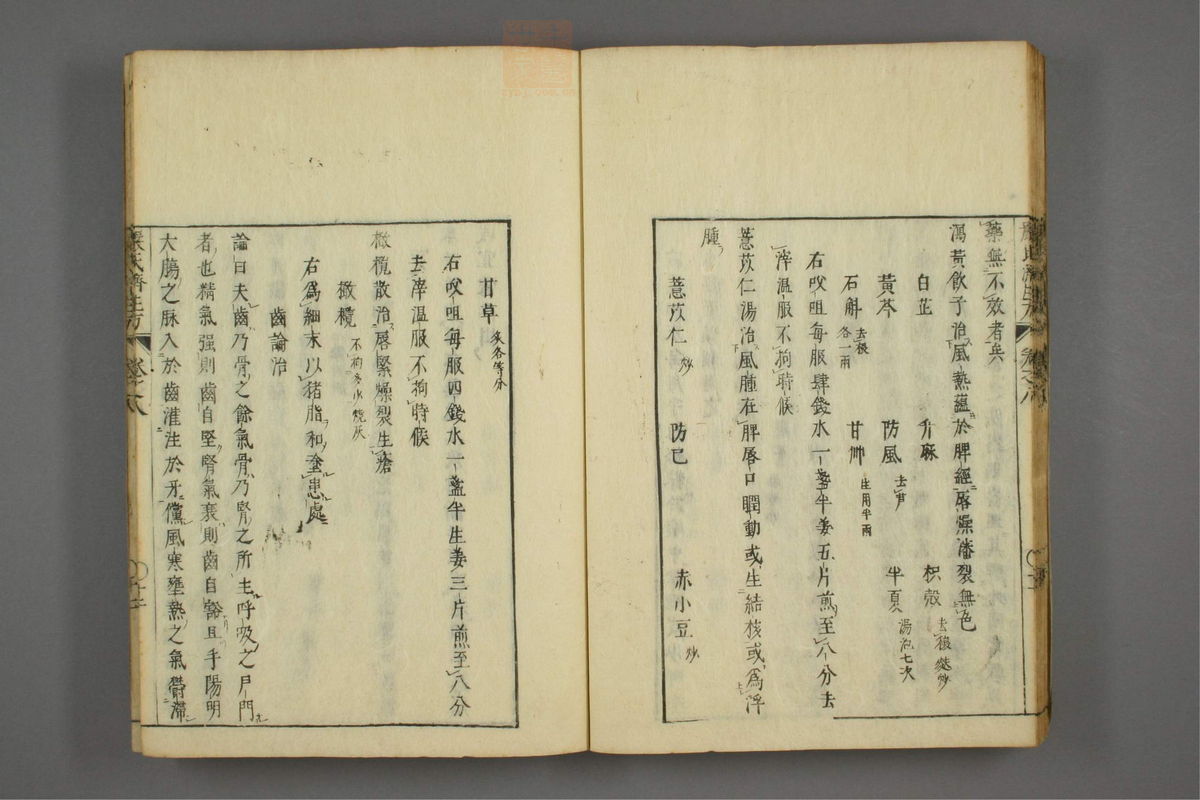 藥無不效者矣
瀉黃飲子治風熱蘊於脾經脣燥瀋裂無色
白芷 升麻 枳殼去穰麩炒
黃芩 防風去芦 半夏湯泡七次
石斛去根各一兩 甘艸生用半兩
右㕮咀每服肆錢水一盞半姜五片煎至八分去
滓温服不拘時候
薏苡仁湯治風腫在脾脣口瞤動或生結核或為浮
腫
薏苡仁炒 防己 赤小豆炒
甘草炙各等分
右㕮咀每服四錢水一盞半生姜三片煎至八分
去滓温服不拘時候
橄欖散治唇緊燥裂生瘡
橄欖不拘多少燒灰
右為細末以猪脂和塗患處
齒論治
論曰夫齒乃骨之餘氣骨乃腎之所主呼吸之戶門
者也精氣强則齒自堅腎氣衰則齒自豁且手陽明
大腸之脉入於齒灌注於牙儻風寒壅熱之氣欝滯
嚴氏濟生方 卷之八